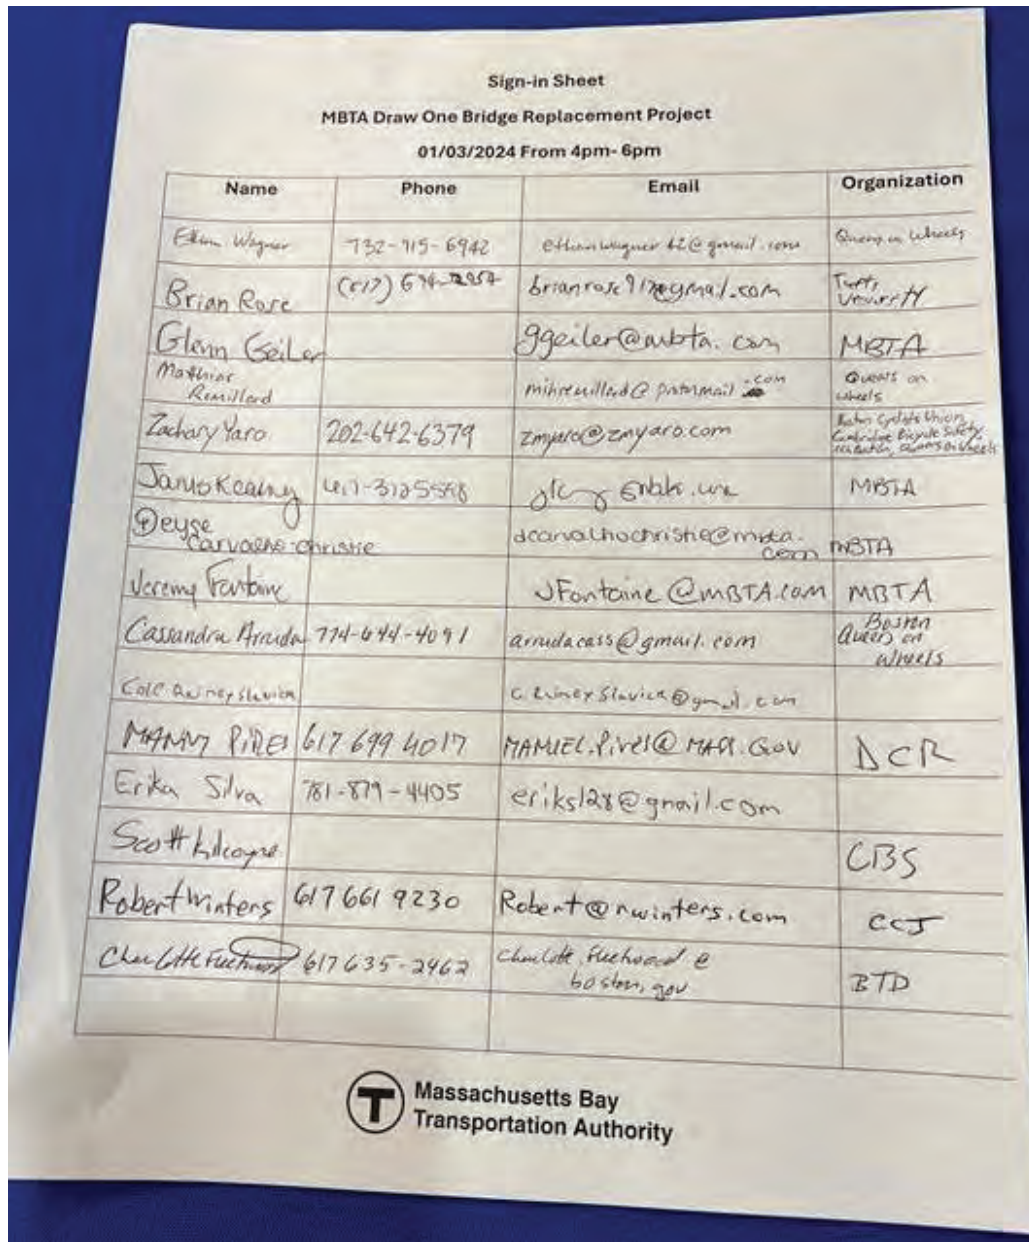 Sign-in Sheet
MBTA Draw One Bridge Replacement Project
01/03/2024 From 4pm- 6pm
Name Phone Email Organization
Ethan Wagner 732-915-6942 ethanwagner62@gmail.com Queers on Wheels
Brian Rose (617) brianrose917@gmail.com Tufts University
Glenn Geiler ggeiler@mbta.com MBTA
Mathias
Remillard .com Queers on
wheels
Zachary Yaro 202-642-6379 zmyaro@zmyaro.com Boston Cyclists Union
Cambridge Bicycle Safety,
Queers on Wheels
MBTA
Deyse
Carvalho-Christie dcarvalhochristie@mbta.
com MBTA
Jeremy Fontaine JFontaine@MBTA.com MBTA
Cassandra Arruda 774-644-4091 arrudacass@gmail.com Boston
Queers on
Wheels
Cole @gmail.com
MANNY PIRES 617 699 4017 MANUEL.Pires@ .Gov DCR
Erika Silva 781-879-4405 eriks128@gmail.com
Scott Kilcoyne CBS
Robert Winters 617 661 9230 Robert@rwinters.com CCJ
Charlotte Fleetwood 617 635-2462 charlotte.fleetwood@
boston.gov BTD
T Massachusetts Bay
Transportation Authority